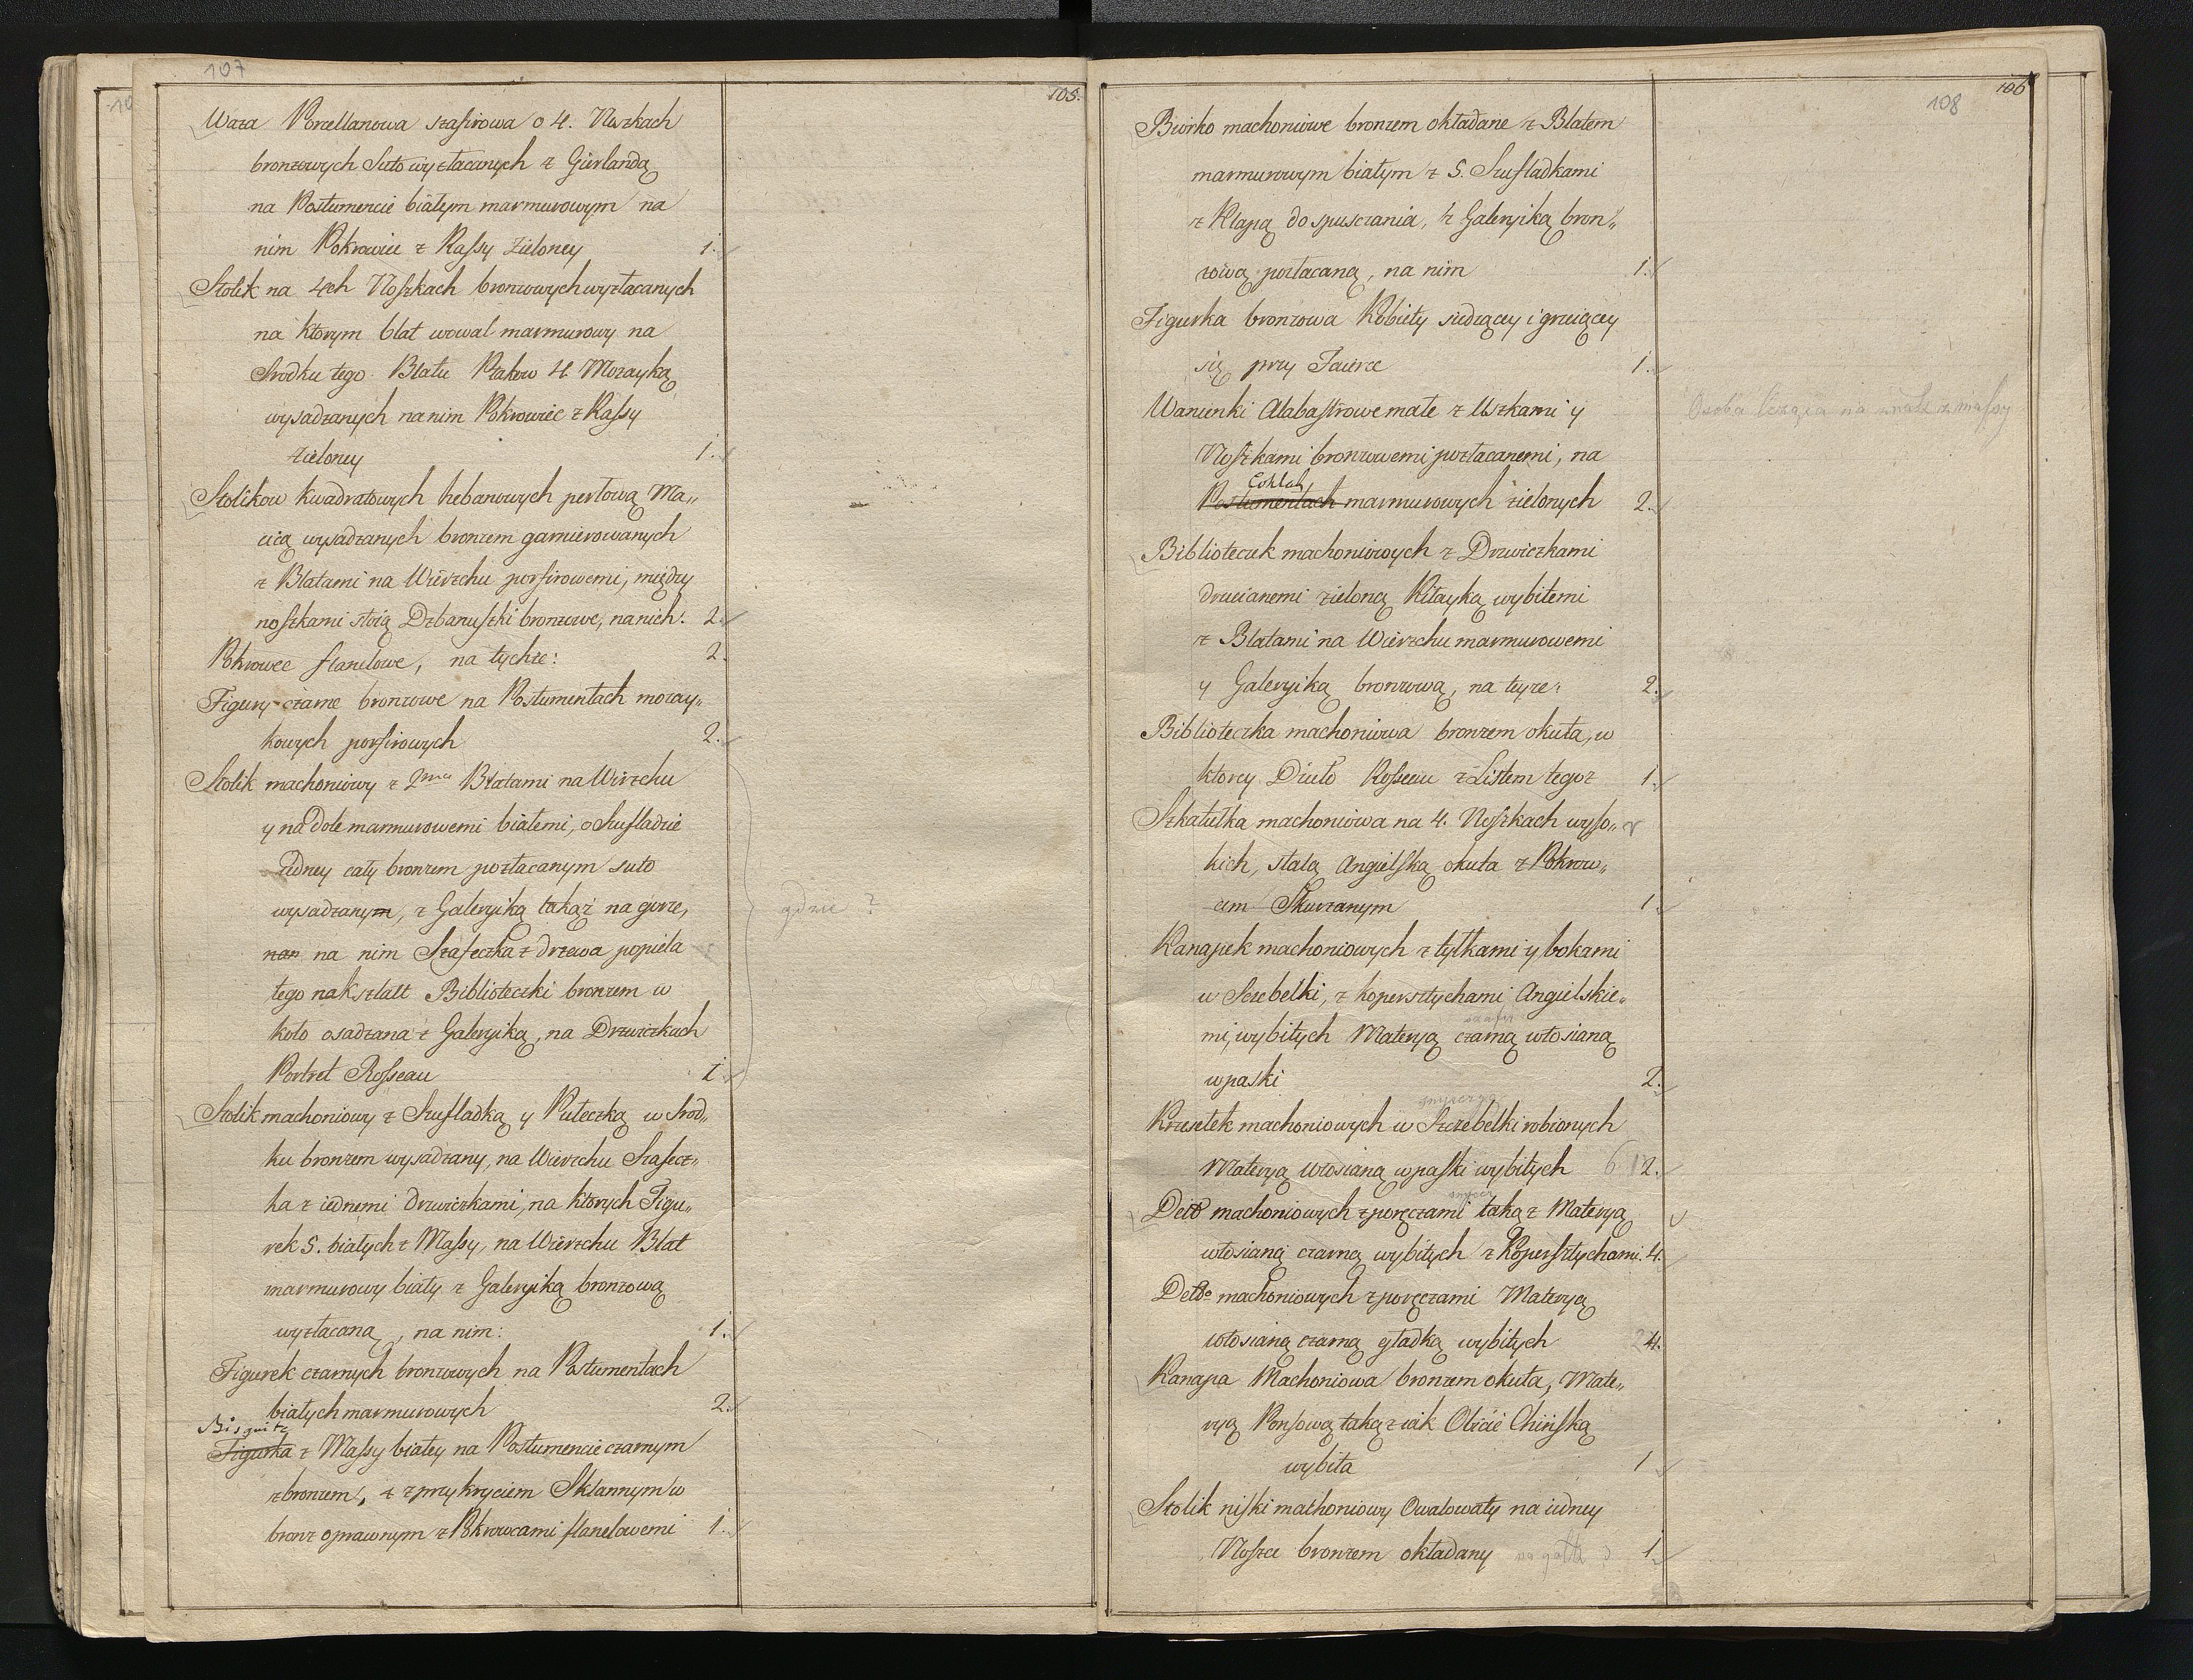 107
105.
Waza Porcellanowa szafirowa o 4. Uszkach
bronzowych Suto wyztacanych z Gierlandą
na Postumencie białym marmurowym na
nim Pokrowiec z Rassy zieloney 1.
Stolik na 4ch Noszkach bronzowych wyztacanych
na ktorym blat uowal marmurowy na
Srodku tego Blatu Ptakow 4. Mozayką
wysadzanych na nim Pokrowiec z Rassy
zieloney 1.
Stolikow kwadratowych hebanowych perłową Ma„
cicą wysadzanych bronzem garnierowanych
z Blatami na Wierzchu porfirowemi, między
noszkami stoią Dzbanuszki bronzowe, na nich: 2.
Pokrowce flanelowe, na tychże: 2.
Figury czarne bronzowe na Postumentach mozay„
kowych porfirowych 2.
Stolik machoniowy z 2ma Blatami na Wirzchu
y na dole marmurowemi białemi, o Szufladzie
iedney cały bronzem pozłacanym suto
wysadzanym, z Galeryiką takąż na gorze,
nan na nim Szafeczka z drzewa popiela
tego nakształt Biblioteczki bronzem w
koło osadzana z Galeryiką, na Drzwiczkach
Portret Rosseau 1
gdzie ?
Stolik machoniowy z Szufladką y Puteczką w Srod„
ku bronzem wysadzany, na Wierzchu Szafecz„
ka z iednemi drzwiczkami, na ktorych Figu„
rek 5. białych z Massy, na Wierzchu Blat
marmurowy biały z Galeryiką bronzową
wyzłacaną, na nim: 1.
Figurek czarnych bronzowych na Postumentach
białych marmurowych 2.
Bisquitz
Figurka z Massy białey na Postumencie czarnym
z bronzem, z przykryciem Sklannym w
bronz oprawnym z Pokrowcami flanelowemi 1.
106
108
Biurko machoniowe bronzem okładane z Blatem
marmurowym białym z 5. Szufladkami
z Klapą do spuszczania, z Galeryiką bron„
zową pozłacaną, na nim 1.
Figurka bronzowa Kobiety siedzącey i grzeiącey
się przy Faierce 1.
Wanienki Alabastrowe małe z Uszkami y
Noszkami bronzowemi pozłacanemi, na
Postumentach marmurowych zielonych 2.
Osoba leżąca na z massy
Biblioteczek machoniowych z Drzwiczkami
drucianemi zieloną Kitayką wybitemi
z Blatami na Wierzchu marmurowemi
y Galeryiką bronzową, na teyże: 2.
Biblioteczka machoniowa bronzem okuta, w
ktorey Dzieło Rosseau z Listem tegoż 1.
Szkatułka machoniowa na 4. Noszkach wyso„
kich, stalą Angielską okuta z Pokrow„
cem Skurzanym 1.
Kanapek machoniowych z tyłkami y bokami
w Szczebelki, z kopersztychami Angielskie„
mi, wybitych Materyą czarną włosianą
w paski 2.
Krzesełek machoniowych w Szczebelki robionych
Materyą włosianą w paski wybitych 6 12.
Detto machoniowych z poręczami takąż Materyą
włosianą czarną wybitych z Kopersztychami. 4.
Detto machoniowych z poręczami Materyą
włosianą czarną gładką wybitych 2 4.
Kanapa Machoniowa bronzem okuta, Mate„
ryą Ponsową takąż iak Obicie Chińską
wybita 1
Stolik niski machoniowy Owalowaty na iedney
Noszce bronzem okładany 1.